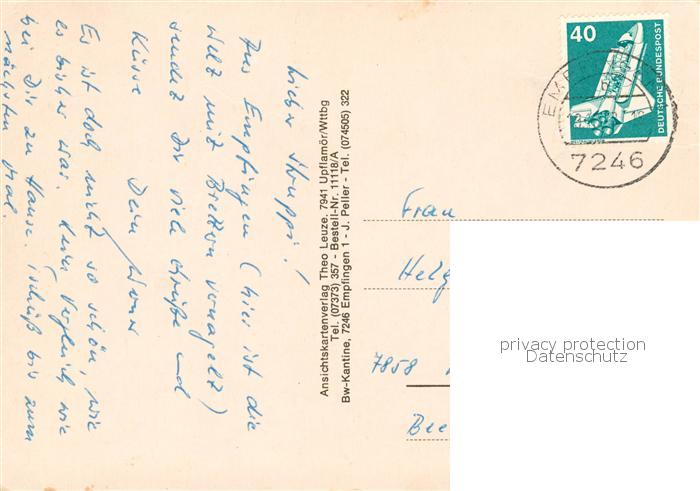 Lieber Schnuppi!
Aus Empfingen (hier ist die
Welt mit Brettern vernagelt)
sendet Dir viele Grüße und
Küsse Dein
Es ist doch nicht so schön, wie
es bisher war. Kein Vergleich wie
bei Dir zu Hause. Tschüß bis zum
nächsten Mal.
Ansichtskartenverlag Theo Leuze, 7941 Upflamör/Wttbg
Tel. (07373) 357 - Bestell-Nr. 11118/A
Bw-Kantine, 7246 Empfingen 1 - J. Peller - Tel. (074505) 322
40
DEUTSCHE BUNDESPOST
7246
Frau
Helg
7858
privacy protection
Datenschutz